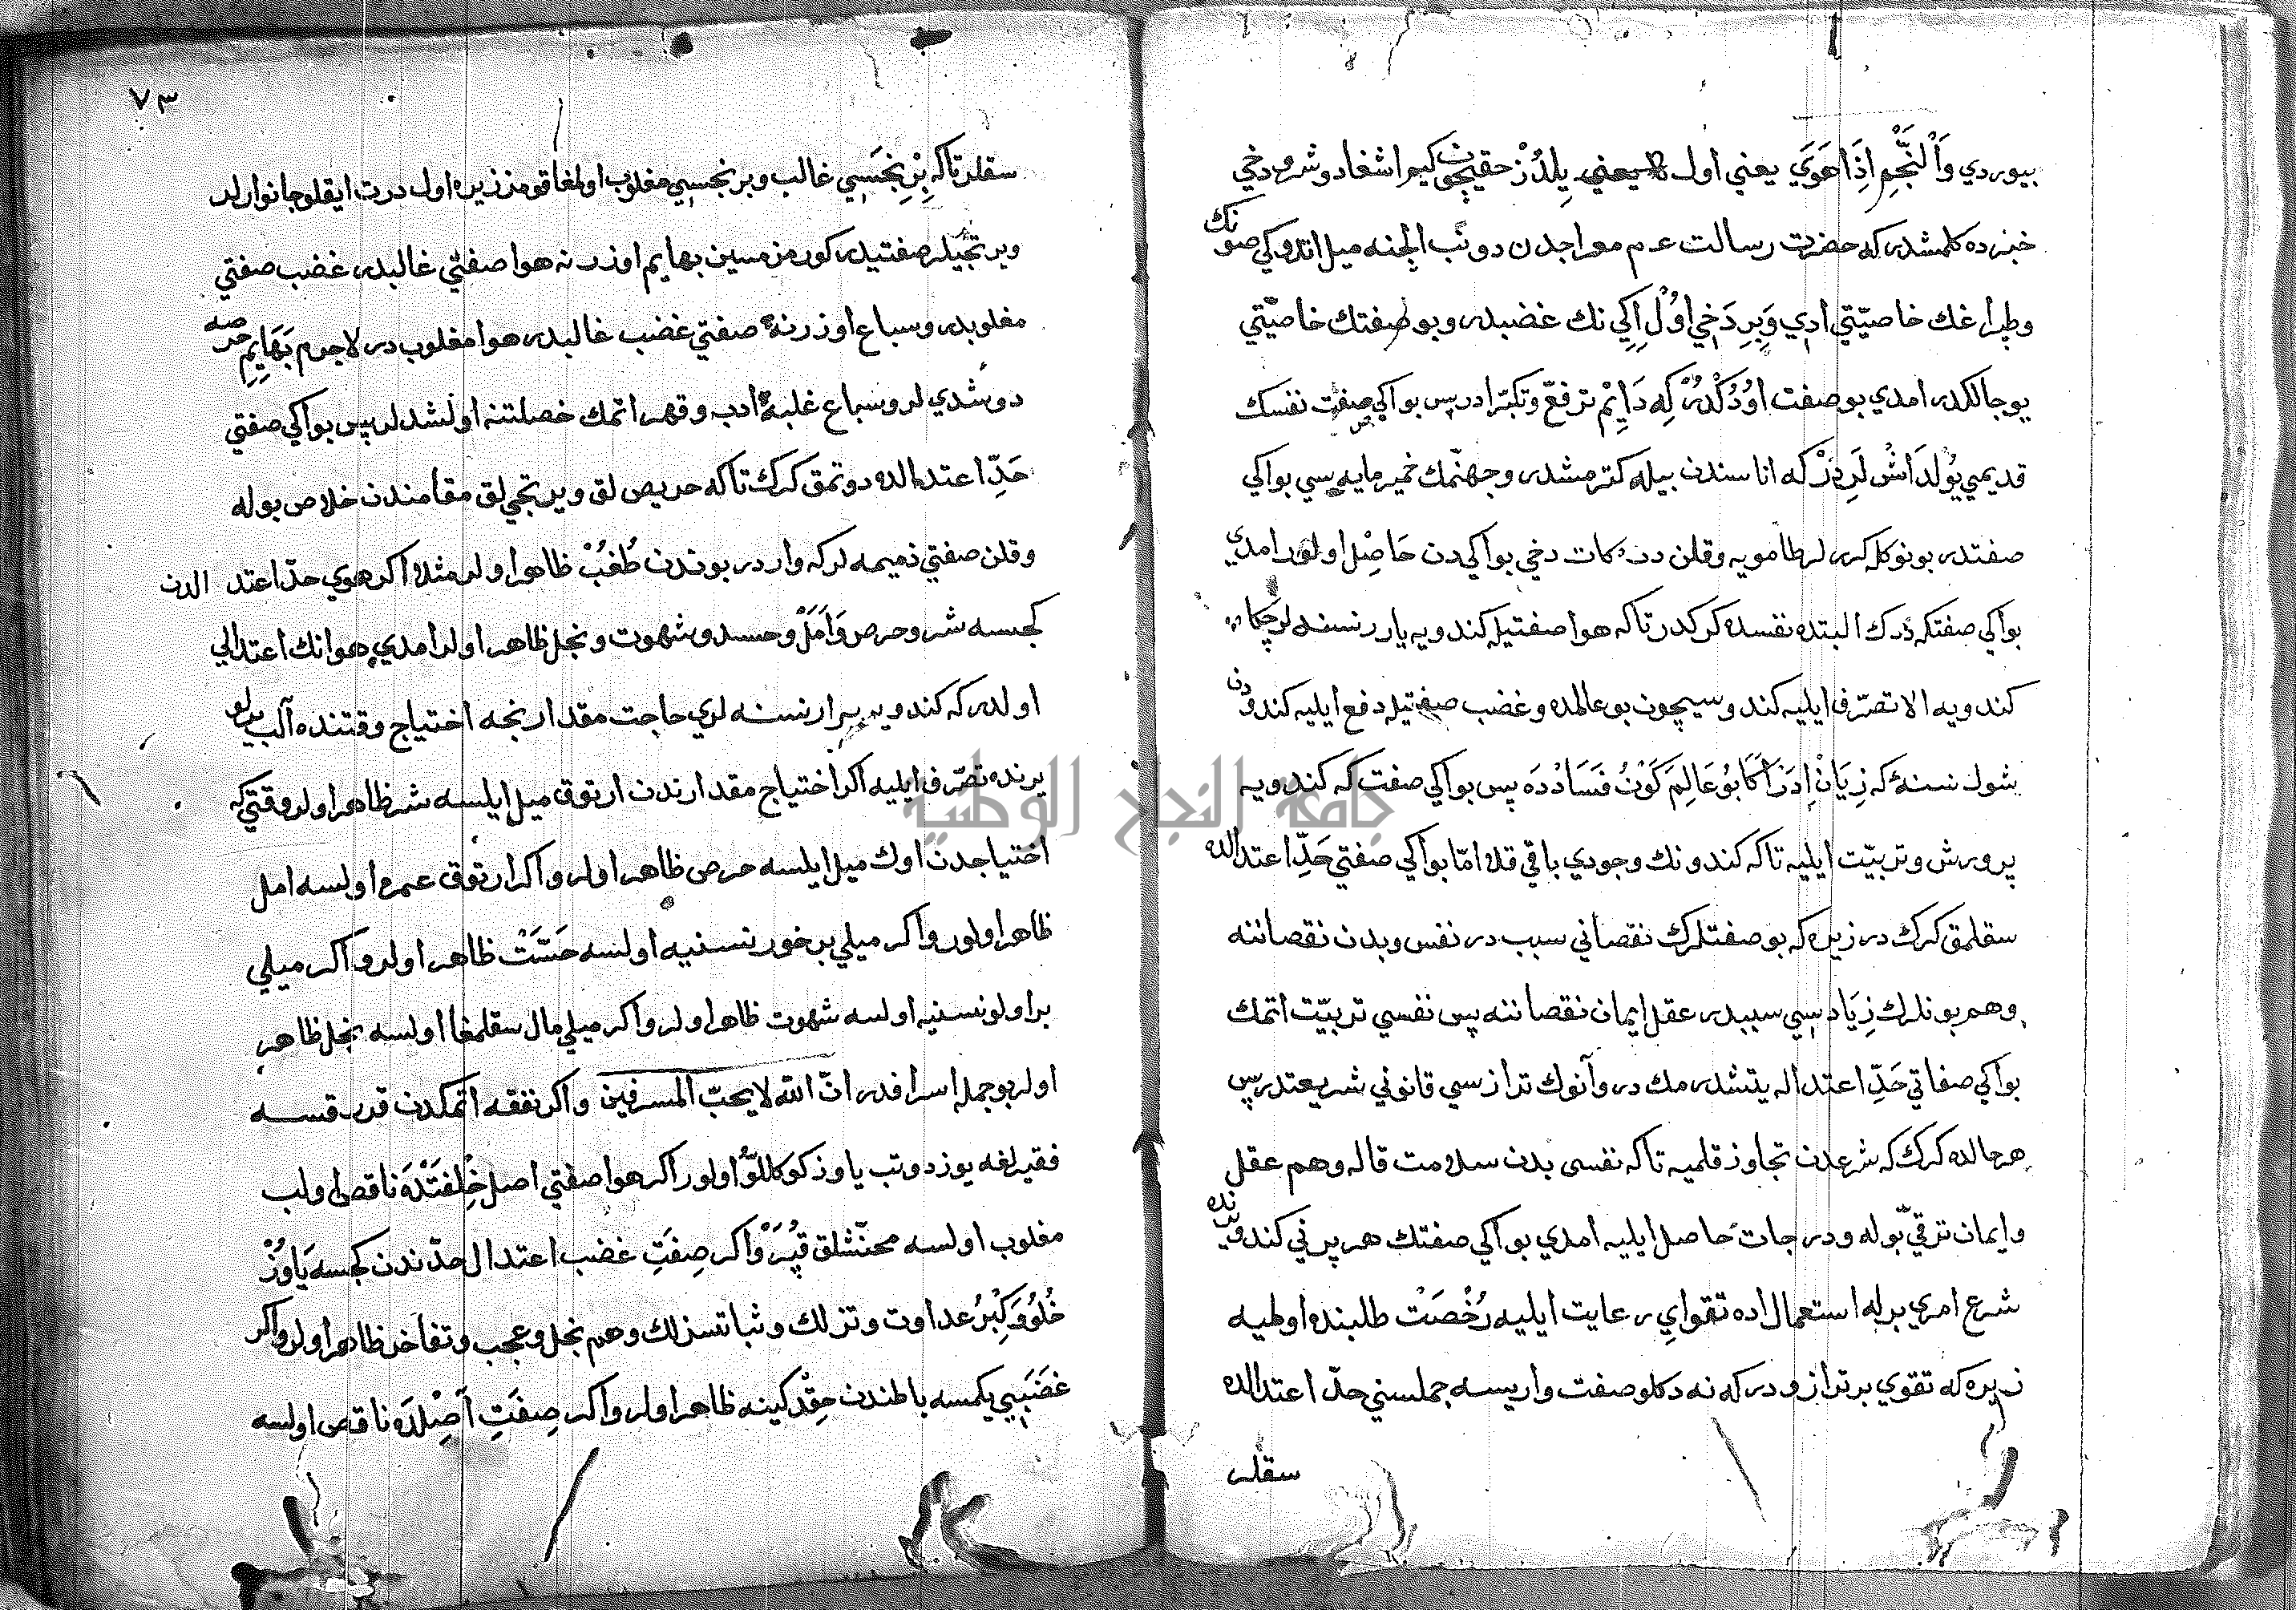 بيوردي وَالنَّجْمِ اِذَا هَوَي يعني اول يِلدُزْ حقيچون كيم اشغا دوشر دخي
خبرده كلمشدر كه حضرت رسالت عم معراجدن دونب الجنه ميل اتدوكي صونك
وطپراغك خاصيّتي ادي وَبِر دَخِي اوُل اِكِي نك غضبيدر وبو صفتك خاصيّتي
يوجالكدر امدي بو صفت اوُدُكْدُرْ كِه دَايِمْ ترفعّ وتكبّر ادر پس بو اكي صفت نفسك
قديمي يُولدَاشْ لَرِدرْ كه اناسندن بيله كتر مشدر وجهنّمك خمير مايه سي بو اكي
صفتدر بونوكله كرر لر طامويه وقلن دركات دخي بو اكي دن حَاصِل اولور امدي
بو اكي صفتكه دَرك البته نفسده كركدر تاكه هوا صفتيله كندويه يارر نسنه لر چكا
كندويه الا تصرّف ايليه كندوسيچون بو عالمده وغضب صفتيله دفع ايليه كندودن
شول نسنۀ كه زِيَانْ اِدَر اَكا بُو عَالِمَ كَوْنُ فَسَادْدَه پس بو اكي صفت كه كندويه
پرورش وتربيّت ايليه تاكه كندونك وجودي باقي قلا امّا بو اكي صفتي حَدِّ اعتدالله
سقلمق كرك در زيره كه بو صفتلرك نقصاني سبب در نفس وبدن نقصاننه
وهم بونلرك زِيَادسِي سببدر عقل ايمان نقصاننه پس نفسي تربيّت اتمك
بو اكي صفاتي حَدِّ اعتداله يتشدرمك در وآنوك ترازسي قانوني شريعتدر پس
هر حالده كرك كه شرعدن تجاوز قلميه تاكه نفسي بدن سلامت قاله وهم عقل
وايمان ترقيّ بوله ودرجات حاصل ايليه امدي بو اكي صفتك هر برني كندو يرنده
شرع امري برله استعمال اده تقوايِ رعايت ايليه رُخْصَتْ طلبنده اولميه
زيره كه تقوي بر ترازو در كه نه دكلو صفت واريسه جملسني حدّ اعتدالده
سقلر
٧٣
سقلر تاكه بِرِنجَسِي غالب وبرنجسي مغلوب اولمغا قومز زيره اول درت ايقلو جانوارلر
ويرتجيلر صفتيدر كورمزمسين بهايم اوزرنه هوا صفتي غالبدر غضب صفتي
مغلوبدر وسباع اوزرنۀ صفتي غضب غالبدر هوا مغلوب در لاجرم بَهَايِمِ حرصه
دوشدي لر وسباع غلبۀ ادب وقهر اتمك خصلتنه اولشدلر پس بو اكي صفتي
حَدِّ اعتدالده دوتمق كرك تاكه حريص لق ويرتجي لق مقامندن خلاص بوله
وقلن صفتي ذميمه لركه وار در بوندن طُغُبْ ظاهر اولر مثلا اكر هوي حدّ اعتدالدن
كجسه شر وحرص وَاَمَلْ وحسد وشهوت وبخل ظاهر اولر امدي هوانك اعتدالي
اولدر كه كندويه يرار نسنه لري حاجت مقدار نجه اختياج وقتنده آلب
يرنده تصرّف ايليه اكر اختياج مقدارندن ارتوق ميل ايلسه شر ظاهر اولر وقتي كه
اختياجدن اوك ميل ايلسه حرص ظاهر اولر واكر ارتوق عمره اولسه امل
ظاهر اولور واكر ميلي بر خور نسنيه اولسه حَسّتْ ظاهر اولر واكر ميلي
بر اولو نسنيه اولسه شهوت ظاهر اولر واكر ميلي مال سقلمغا اولسه بخل ظاهر
اولر بو جمله اسرافدر انّ الله لا يحبّ المسرفين واكر نفقه اتمكدن قورقسه
فقيرلغه يوز دوتب ياوز كوكللوُ اولور اكر هوا صفتي اصل خِلقتْدَه ناقص اولب
مغلوب اولسه محنّشلق قپَرْ وَاكر صِفَتِ غضب اعتدال حدّندن كجسه يَاوُزْ
خُلُو وَكِبْرُ عداوت وتزلك وثباتسزلك وهم بخل وعجب وتفاخر ظاهر اولر واكر
غَضَبِيِي يكمسه باطندن حِقْد كينه ظاهر اولر واكر صِفَتِ اَصِلدَه ناقص اولسه
جامعة النجاح الوطنية